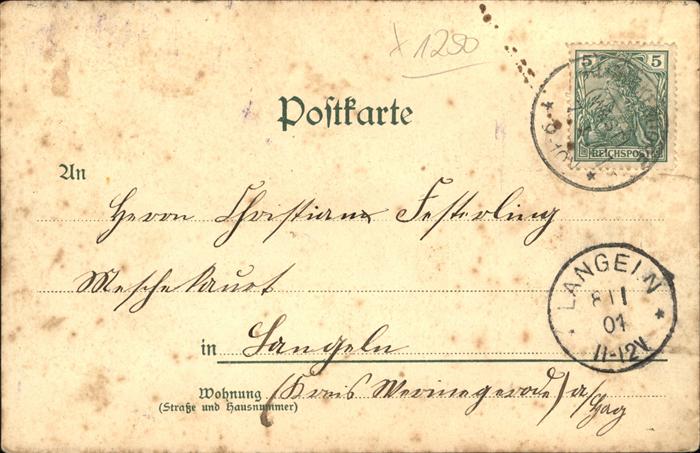 x 1290
5 5
REICHSPOST
Postkarte
An
Herrn Christian Festerling
LANGELN
8 11
01
11-12V
in Langeln
Wohnung (Kreis Wernegerode) a/Hag
(Straße und Hausnummer)